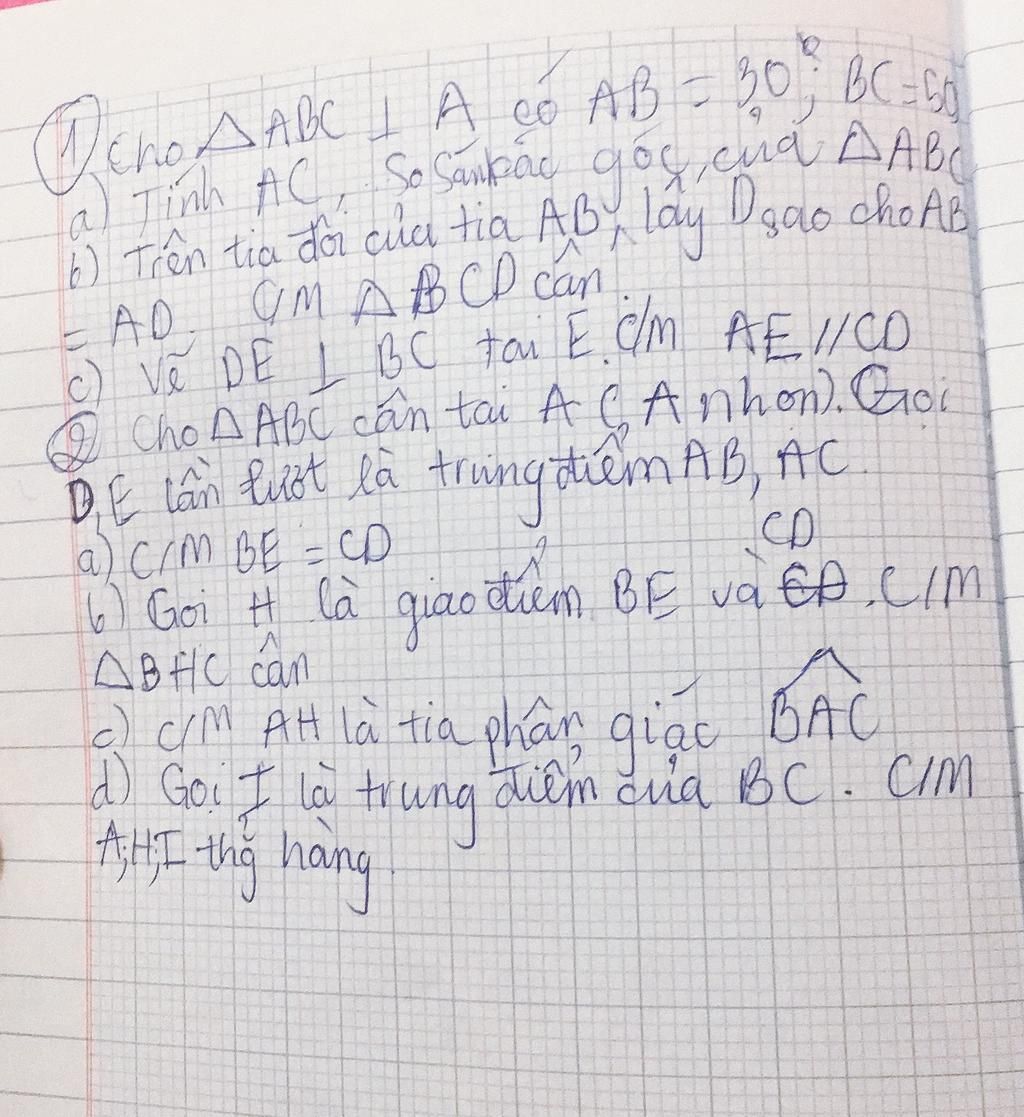 ① Cho △ABC ⊥ A có AB = 30; BC = 50
a) Tính AC, So sánh các góc của △ABC
b) Trên tia đối của tia AB, lấy D sao cho AB
= AD. C/M △BCD cân.
c) Vẽ DE ⊥ BC tại E. C/M AE // CD
② Cho △ABC cân tại A (A nhọn). Gọi
D, E lần lượt là trung điểm AB, AC.
a) C/M BE = CD
b) Gọi H là giao điểm BE và CD. C/M
△BHC cân
c) C/M AH là tia phân giác BAC
d) Gọi I là trung điểm của BC. C/M
A;H;I thg hàng.